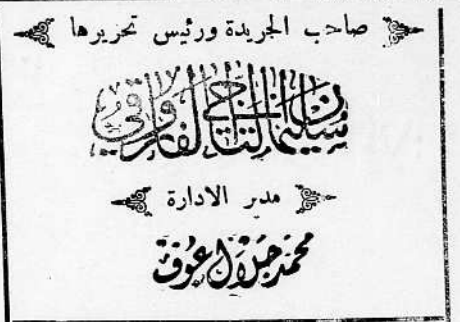 صاحب الجريدة ورئيس تحريرها
سليمان التاجي الفاروقي
مدير الادارة
محمد جلال عوف